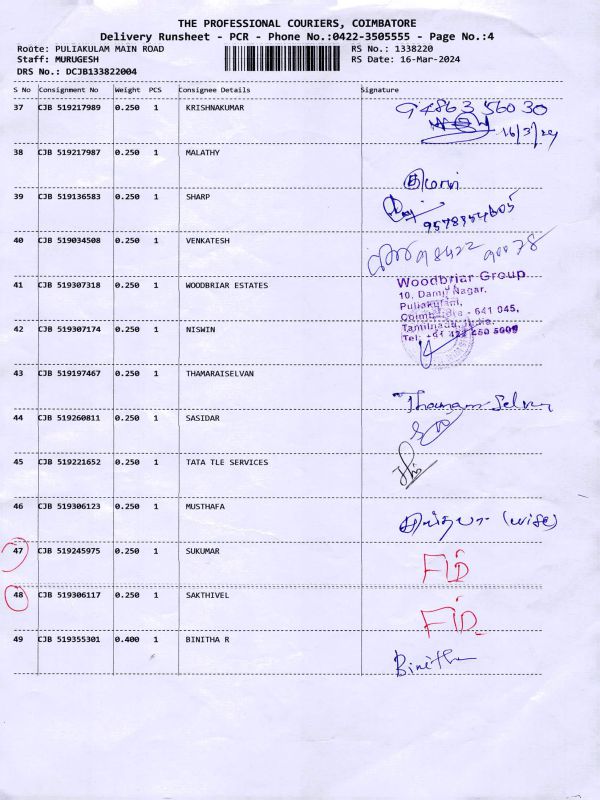 THE PROFESSIONAL COURIERS, COIMBATORE
Delivery Runsheet - PCR - Phone No.:0422-3505555 - Page No.:4
Route: PULIAKULAM MAIN ROAD RS No.: 1338220
Staff: MURUGESH RS Date: 16-Mar-2024
DRS No.: DCJB133822004
S No Consignment No Weight PCS Consignee Details Signature
37 CJB 519217989 0.250 1 KRISHNAKUMAR 94863 56030
16/3/24
38 CJB 519217987 0.250 1 MALATHY
39 CJB 519136583 0.250 1 SHARP
40 CJB 519034508 0.250 1 VENKATESH
41 CJB 519307318 0.250 1 WOODBRIAR ESTATES Woodbriar Group
10, Damu Nagar,
Puliakulam,
Coimbatore - 641 045,
42 CJB 519307174 0.250 1 NISWIN Tamilnadu, India.
Tel: +91 422 450 5009
43 CJB 519197467 0.250 1 THAMARAISELVAN
44 CJB 519260811 0.250 1 SASIDAR
45 CJB 519221652 0.250 1 TATA TLE SERVICES
46 CJB 519306123 0.250 1 MUSTHAFA (wise)
47 CJB 519245975 0.250 1 SUKUMAR FID
48 CJB 519306117 0.250 1 SAKTHIVEL FID
49 CJB 519355301 0.400 1 BINITHA R Binitha